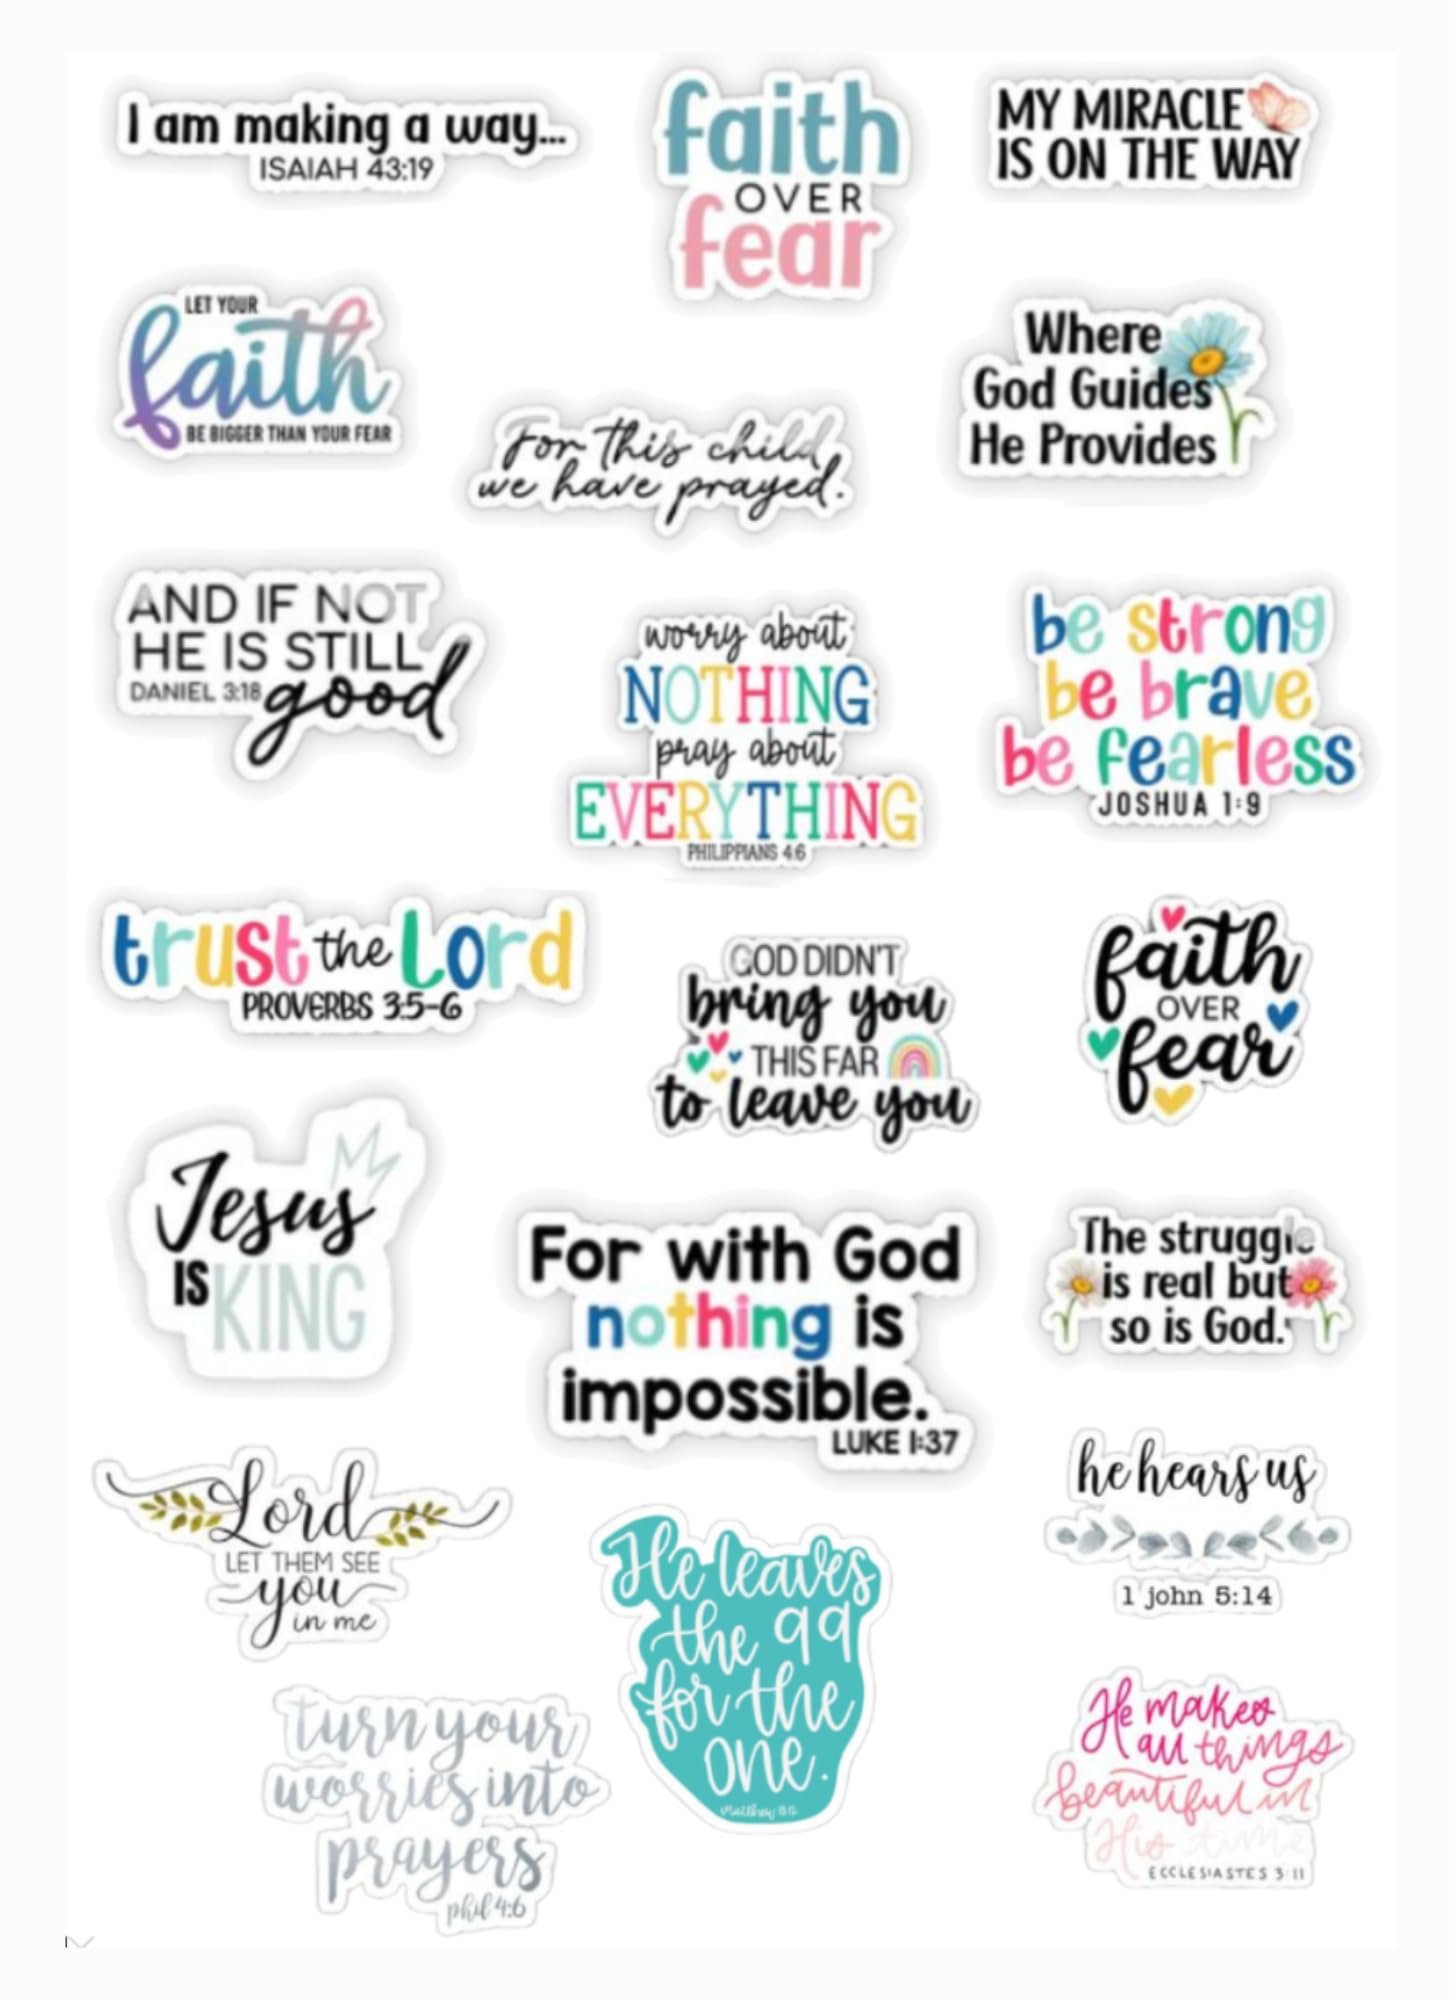 I am making a way...
ISAIAH 43:19
faith
OVER
fear
MY MIRACLE
IS ON THE WAY
LET YOUR
faith
BE BIGGER THAN YOUR FEAR
For this child
we have prayed.
Where
God Guides
He Provides
AND IF NOT
HE IS STILL
DANIEL 3:18
good
worry about
NOTHING
pray about
EVERYTHING
PHILIPPIANS 4:6
be strong
be brave
be fearless
JOSHUA 1:9
trust the Lord
PROVERBS 3:5-6
GOD DIDN'T
bring you
THIS FAR
to leave you
faith
OVER
fear
Jesus
IS KING
For with God
nothing is
impossible.
LUKE 1:37
The struggle
is real but
so is God.
Lord
LET THEM SEE
you
in me
he hears us
1 john 5:14
He leaves
the 99
for the
one.
Matthew 18:12
turn your
worries into
prayers
phil 4:6
He makes
all things
beautiful in
His time
ECCLESIASTES 3:11